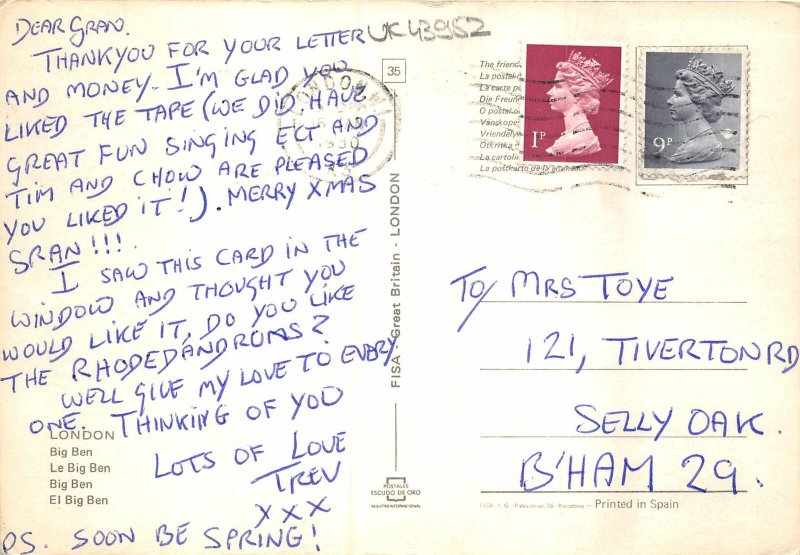 DEAR GRAN.
THANKYOU FOR YOUR LETTER
AND MONEY. I'M GLAD YOU
LIKED THE TAPE (WE DID HAVE
GREAT FUN SINGING ECT AND
TIM AND CHOW ARE PLEASED
YOU LIKED IT!). MERRY XMAS
GRAN!!!
I SAW THIS CARD IN THE
WINDOW AND THOUGHT YOU
WOULD LIKE IT, DO YOU LIKE
THE RHODEDANDROMS?
WELL GIVE MY LOVE TO EVERY
ONE. THINKING OF YOU
LOTS OF LOVE
TREV
XXX
PS. SOON BE SPRING!
LONDON
Big Ben
Le Big Ben
Big Ben
El Big Ben
UK43952
35
LONDON
1980
FISA - Great Britain - LONDON
POSTALES
ESCUDO DE ORO
REGISTRO INTERNACIONAL
The friend
La postal
La carte p
Die Freun
O postal
Vänskape
Vriendely
Otkritka
La cartoli
La postkarto de la
1P
9P
TO/ MRS TOYE
121, TIVERTON RD
SELLY OAK.
B'HAM 29.
FISA I. G. Palaudarias, 26 - Barcelona - Printed in Spain